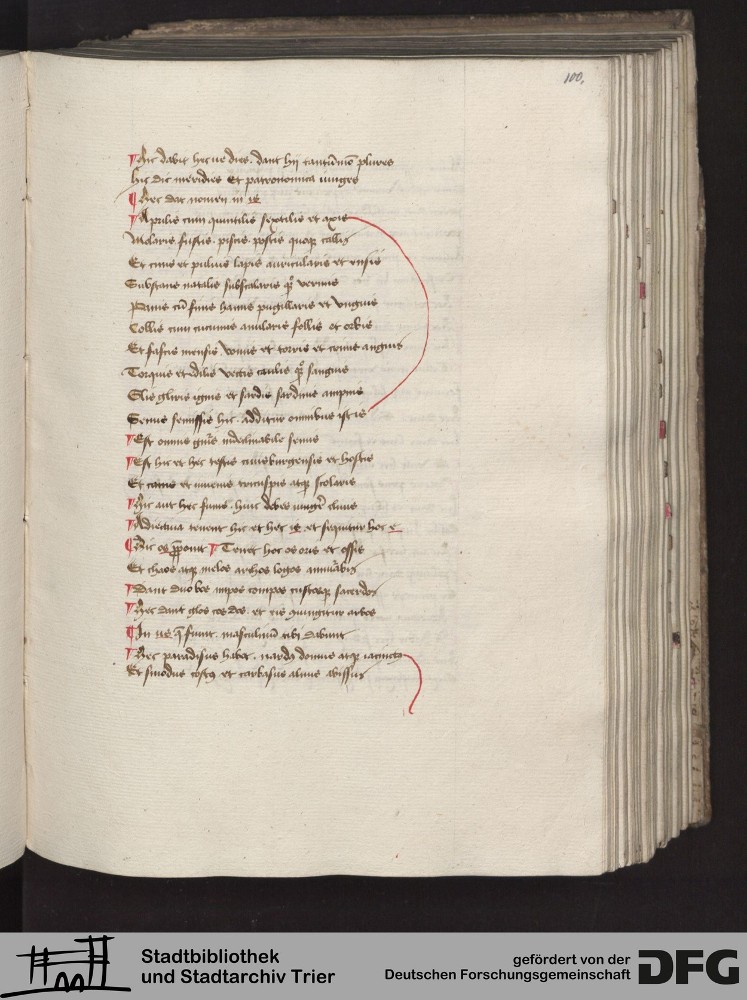 100.
Hic dabit hec ue dies. dant hii tantūmō plures
hic dic meridies Et patronomica iunges
Hec dat nomen in is
Aprilis cum quintilis sextilis et axis
Molaris fustis. piscis. postis quoque callis
Et cinis et puluis lapis auricularis et ensis
Substans natalis subscalaris vermis
Panis cū funis hamis pugillaris et unguis
Collis cum cucumis anularis follis et orbis
Et fascis mensis vomis et torris et crinis anguis
Torquis et edilis vectis caulis sanguis
Glis gliris ignis et sardis
Senis semissis hic. additur omnibus istis
Est omnis indeclinabile
Est hic et hec testis ciuis burgensis et hostis
Et canis et iuuenis tricuspis atque scolaris
Hic aut hec funis. huic debes clunis
Adiectiua tenent hic et hec is et sequitur hoc e
Hic os Tenet hoc os oris et ossis
Et chaos atque melos logos
Dant duo bos inpos compos custosque sacerdos
Hec dant glos cos dos. et ris arbos
In us q̄ sunt. masculinū tibi dabunt
Hec paradisus habet. nardus domus atque iacinctus
Et sinodus costus et carbasus aluus abissus
Stadtbibliothek
und Stadtarchiv Trier
gefördert von der
Deutschen Forschungsgemeinschaft
DFG